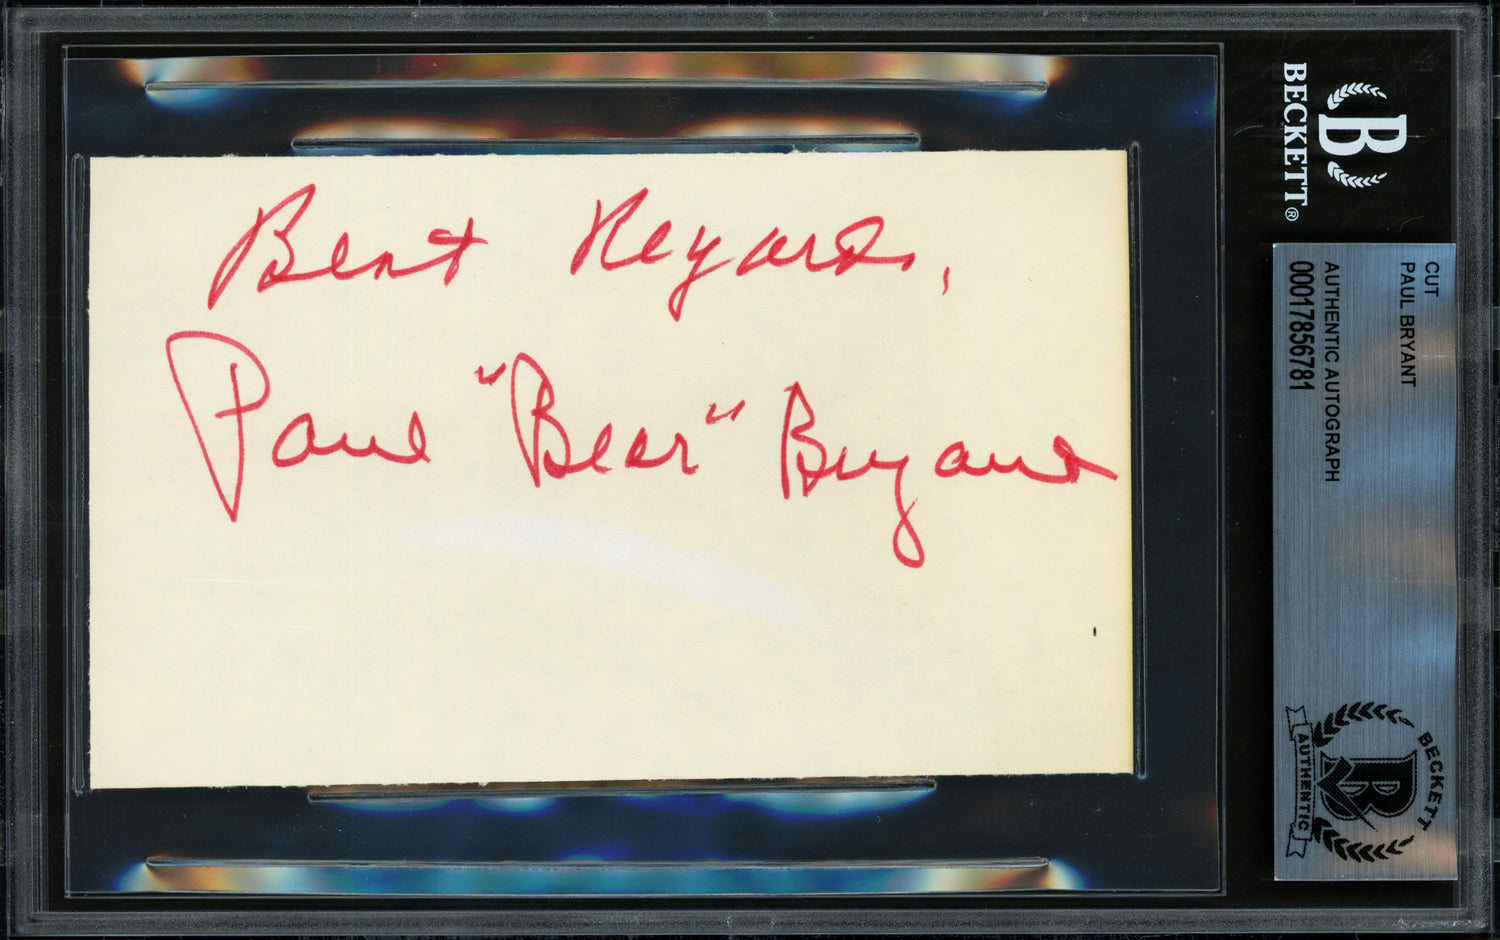 Best Regards,
Paul "Bear" Bryant
BECKETT®
CUT
PAUL BRYANT
AUTHENTIC AUTOGRAPH
00017856781
B
BECKETT
B
AUTHENTIC